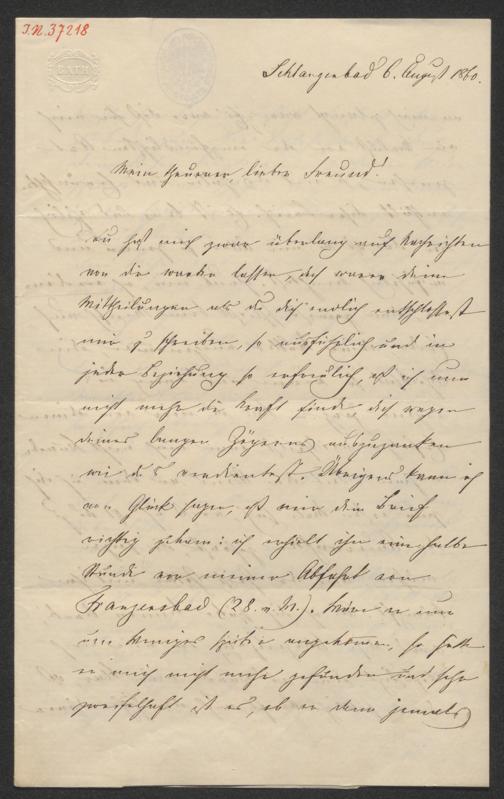 I.N. 37218
BATH
Schlangenbad 6. August 1860.
Mein theurer, lieber Freund!
Du hast mich zwar überlang auf Nachrichten
von dir warten lassen, doch waren deine
Mittheilungen als du dich endlich entschlossest
mir z schreiben, so ausführlich und in
jeder Beziehung so erfreulich, ich nun
nicht mehr die Kraft finde dich wegen
deines langen Zögerns auszuzanken
wie du's verdientest. Übrigens kann ich
von Glück sagen, mir dein Brief
richtig zukam: ich erhielt ihn eine halbe
Stunde vor meiner Abfahrt von
Franzensbad (28. v. M.). Wäre er nur
um Weniges später angekommen, so hätte
er mich nicht mehr gefunden und sehr
zweifelhaft ist es, ob er denn jemals